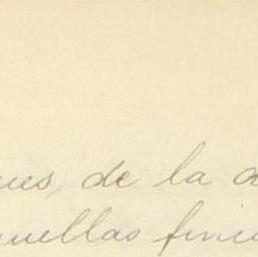 ues, de la a
quellas finc